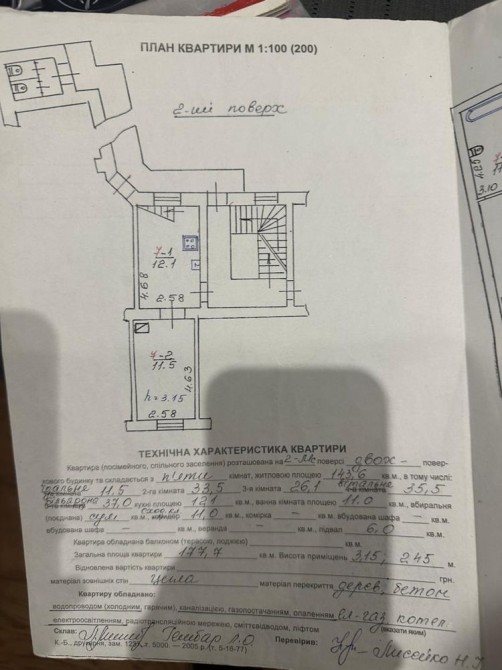 ПЛАН КВАРТИРИ М 1:100 (200)
2-ий поверх
7-1
12.1
4.68
2.58
7-2
11.5
4.63
h=3.15
2.58
3.10
ТЕХНІЧНА ХАРАКТЕРИСТИКА КВАРТИРИ
Квартира (посімейного, спільного заселення) розташована на 2-му поверсі двох- повер-
хового будинку та складається з п'яти кімнат, житловою площею 143,6 кв.м., в тому числі:
11.5 2-га кімната 33,5 3-я кімната 26,1 35,5
більярдна 37,0 кухні площею 12,1 кв.м., ванна кімната 11.0 кв.м., вбиральня
(поєднана) сум коридор 11,0 кв.м., комірка – кв.м., вбудована шафа – кв.м.,
вбудована шафа – кв.м., веранда – кв.м., підвал 6,0 кв.м.
Квартира обладнана балконом (терасою, лоджією) кв.м.
Загальна площа квартири 177,7 кв.м. Висота приміщень 3.15; 2,45 м.
Відновлена вартість квартири грн.
матеріал зовнішніх стін цегла матеріал перекриття дерев, бетон
Квартиру обладнано:
водопроводом (холодним, гарячим), каналізацією, газопостачанням, опаленням Ел-газ котел
електроосвітленням, радіотрансляційною мережею, сміттєвідводом, ліфтом (вказати яким)
Склав: Перевірив:
К.-Б., друкарня, зам. 5000. — 2005 р.